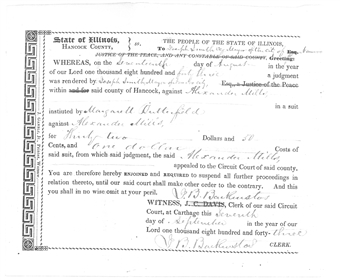 State of Illinois,
HANCOCK COUNTY, } ss. THE PEOPLE OF THE STATE OF ILLINOIS,
To Joseph Smith Mayor of the City of Nauvoo Esq.
JUSTICE OF THE PEACE, AND ANY CONSTABLE OF SAID COUNTY, Greeting:
WHEREAS, on the seventeenth day of August in the year
of our Lord one thousand eight hundred and a judgment
was rendered by Joseph Smith Mayor Esq., a Justice of the Peace
within and for said county of Hancock, against Alexander Mills
in a suit
instituted by Margarett Butterfield
against Alexander Mills
for Thirty two Dollars and 50
Cents, and one dollar Costs of
said suit, from which judgment, the said Alexander Mills
appealed to the Circuit Court of said county.
You are therefore hereby ENJOINED and REQUIRED to suspend all further proceedings in
relation thereto, until our said court shall make other order to the contrary. And this
you shall in no wise omit at your peril. J. B. Backenstos
WITNESS, J. C. DAVIS, Clerk of our said Circuit
Court, at Carthage this Seventh
day of September in the year of our
Lord one thousand eight hundred and forty-three
J. B. Backenstos CLERK.